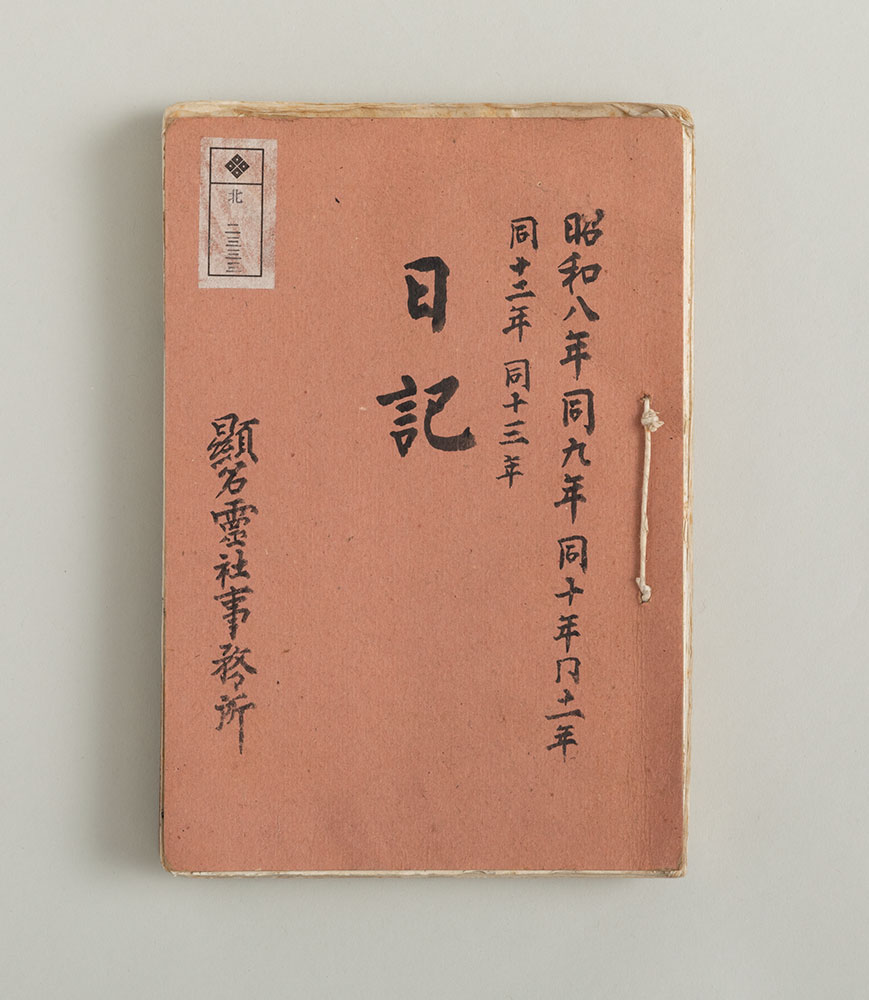 昭和八年同九年同十年同十一年
同十二年同十三年
日記
顯名靈社事務所
北
二三三三